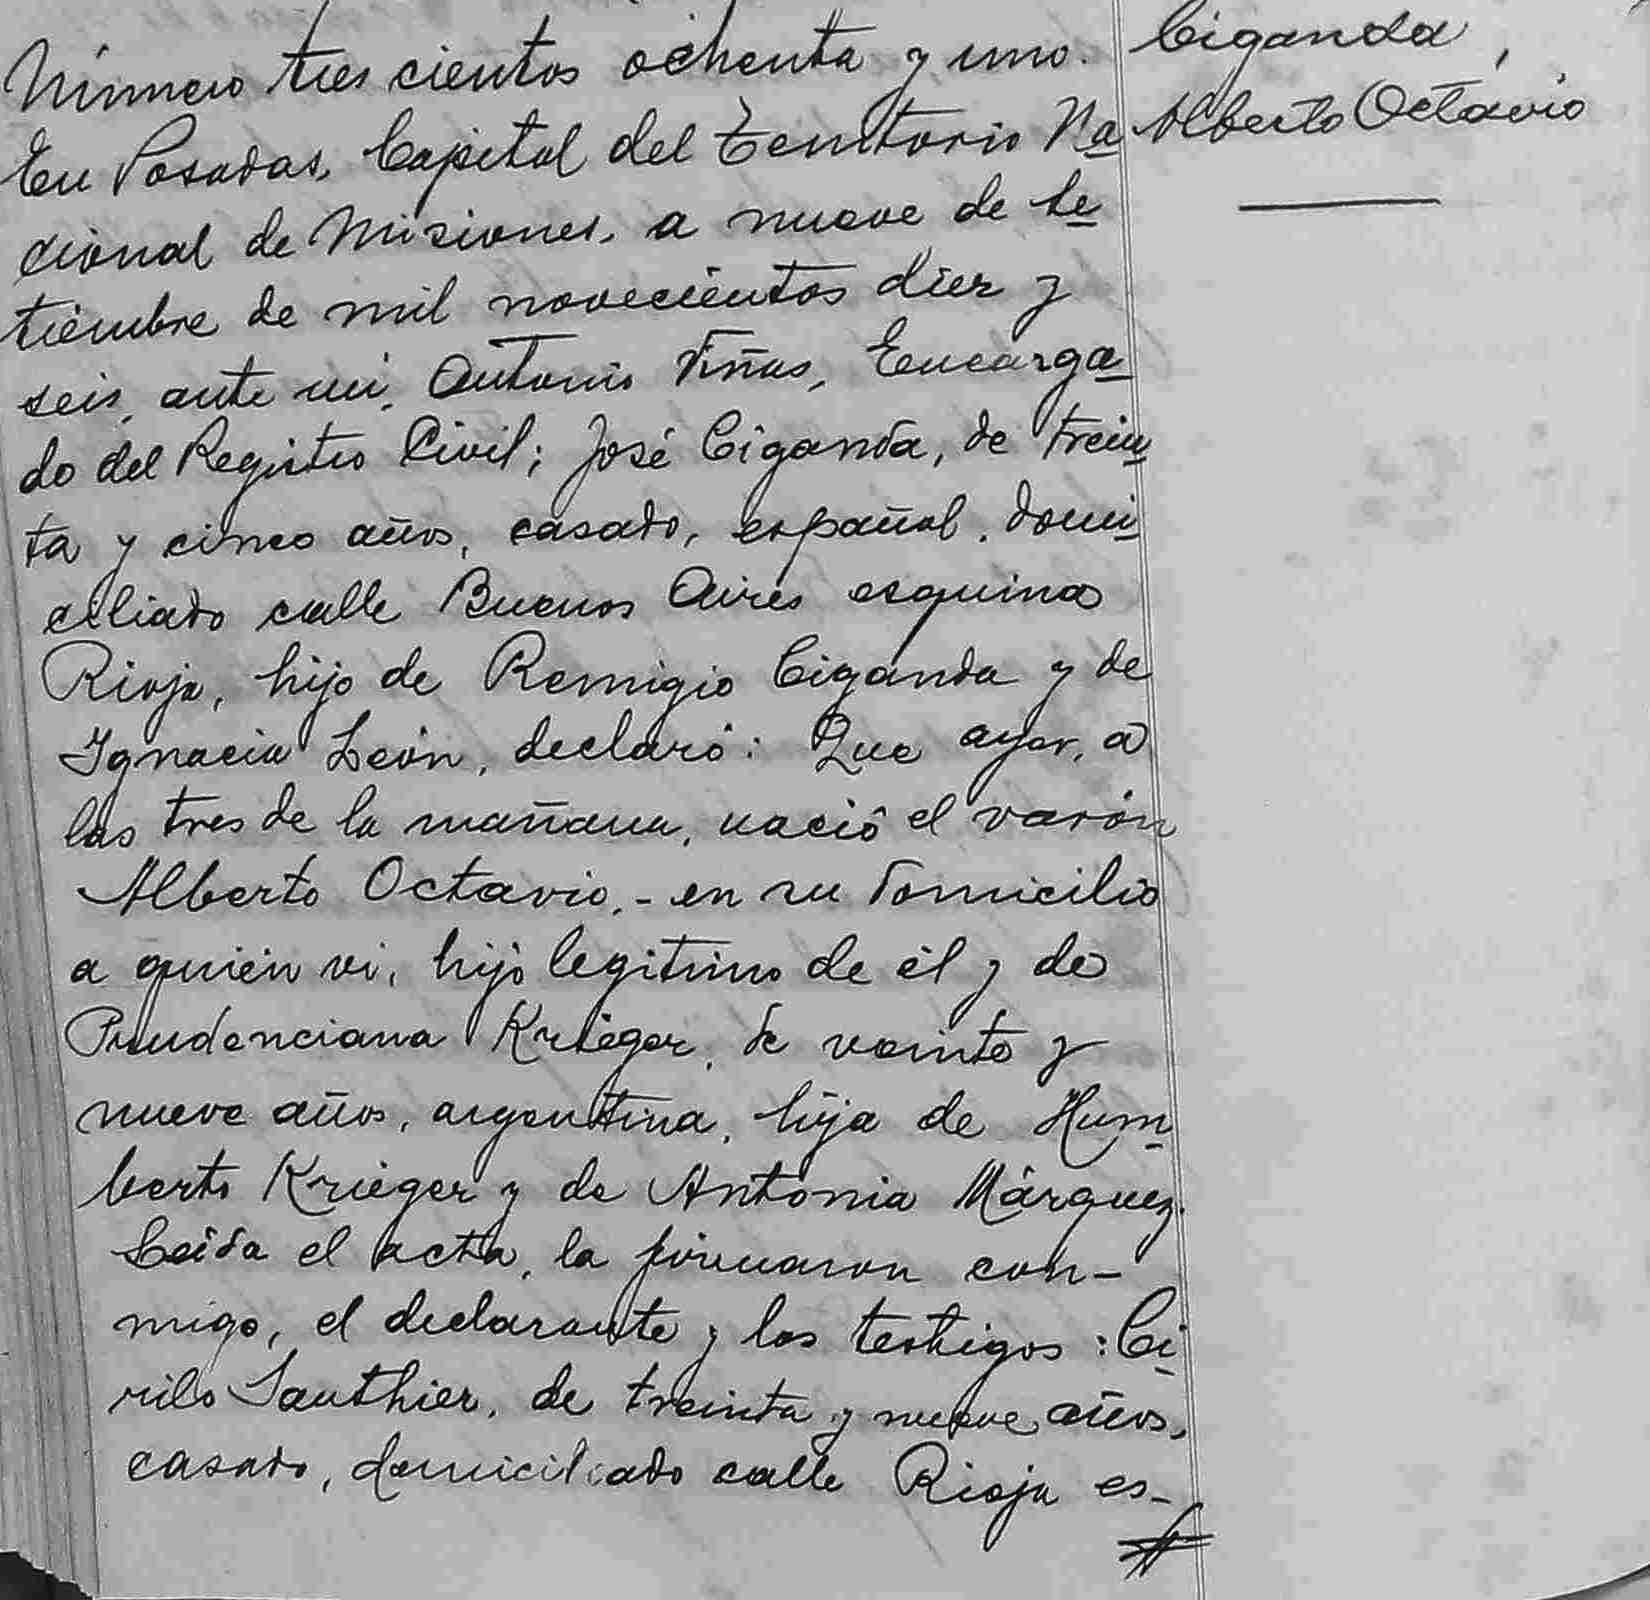 Número tres cientos ochenta y uno.
En Posadas, Capital del Territorio Na
cional de Misiones, a nueve de Se
tiembre de mil novecientos diez y
seis, ante mi, Antonio Viñas, Encarga
do del Registro Civil; José Ciganda, de trein
ta y cinco años, casado, español, domi
ciliado calle Buenos Aires esquina
Rioja, hijo de Remigio Ciganda y de
Ignacia León, declaró: Que ayer, a
las tres de la mañana, nació el varón
Alberto Octavio,- en su domicilio
a quién vi, hijo legitimo de él y de
Prudenciana Krieger, de veinte y
nueve años, argentina, hija de Hum
berto Krieger y de Antonia Márquez.
Leída el acta, la firmaron con-
migo, el declarante y los testigos: Ci
rilo Sauthier, de treinta y nueve años,
casado, domiciliado calle Rioja es-
Ciganda,
Alberto Octavio